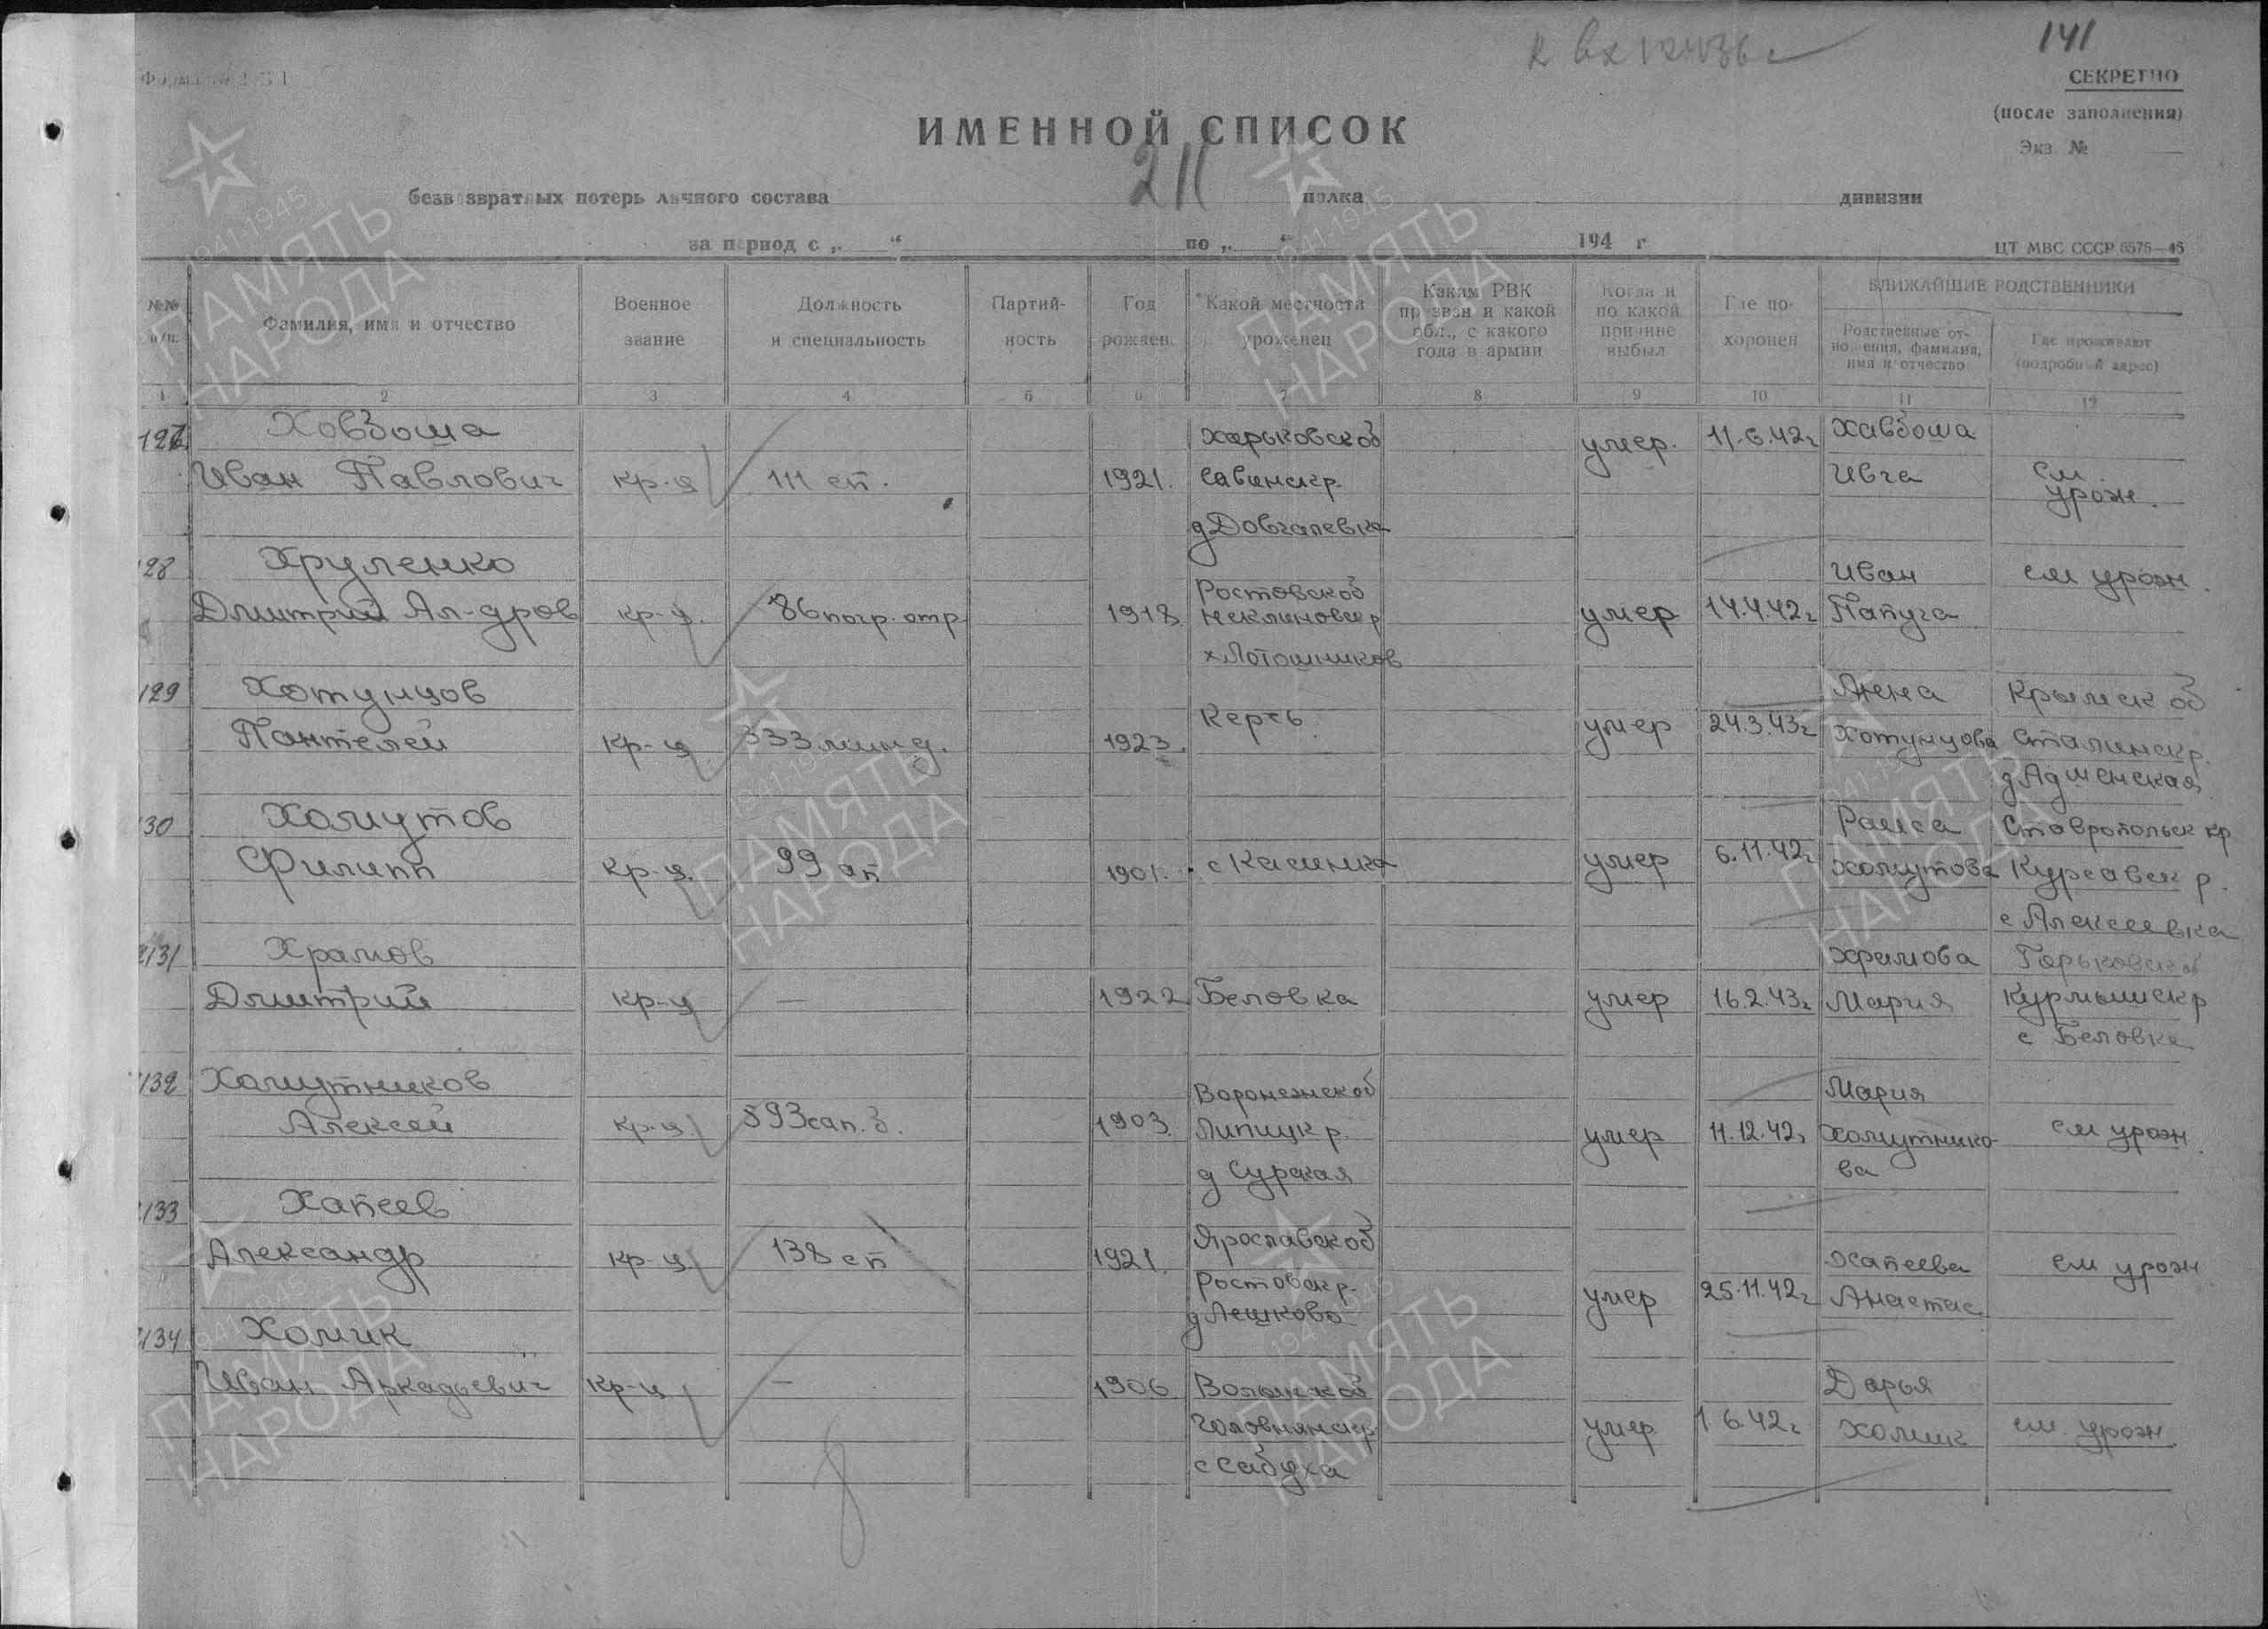 141
СЕКРЕТНО
(после заполнения)
Экз. №
ИМЕННОЙ СПИСОК
211
безвозвратных потерь личного состава полка дивизии
за период с „ “ по „ “ 194 г
ЦТ МВС СССР 6576—45
№№ п/п. Фамилия, имя и отчество Военное звание Должность и специальность Партий-ность Год рожден. Какой местности уроженец Каким РВК призван и какой обл., с какого года в армии Когда и по какой причине выбыл Где по-хоронен БЛИЖАЙШИЕ РОДСТВЕННИКИ
Родственные от-ношения, фамилия, имя и отчество Где проживают (подробный адрес)
1 2 3 4 5 6 7 8 9 10 11 12
127 Ховбоша Харьковск об умер. 11.6.42г Хавбоша
Иван Павлович кр-ц 111 сп. 1921. Савинск р. Ивга см урож.
д Довгалевка
128 Хруленко Иван см урож.
Дмитрий Ал-дров кр-ц. 86 погр. отр. 1918 Ростовск об умер 14.4.42г Папуга
Неклиновск р
х. Лотошников
129 Хотунцов Жена Крымск об
Пантелей кр-ц 333 мин д. 1923. Керчь умер 24.3.43г Хотунцова Сталинск р.
130 Хомутов Раиса Ставропольск кр
Филипп кр-ц. 99 ап 1901. с Касинка умер 6.11.42г Хомутова Курсавск р.
с Алексеевка
131 Храмов Храмова Горьковск об
Дмитрий кр-ц — 1922 Беловка умер 16.2.43г Мария Курмышск р
с Беловка
132 Хомутников Воронежск об Мария
Алексей кр-ц. 593 сап. б. 1903. Липицк р. умер 11.12.42г Хомутнико-
д Сурская ва см урож.
133 Хапеев Ярославск об
Александр кр-ц. 138 сп 1921. Ростовск р. Хапеева см урож
д Лешково умер 25.11.42г Анастас
134 Хомик
Иван Аркадьевич кр-ц — 1906 Волынск об Дарья
Головнянск р умер 1.6.42г Хомик см. урож.
с Сабуха
1941-1945
ПАМЯТЬ
НАРОДА